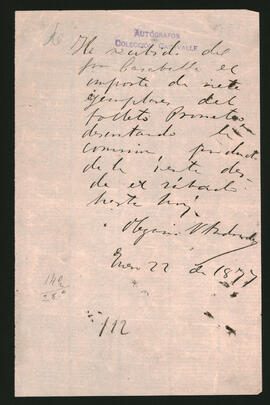 AUTÓGRAFOS
COLECCIÓN CARAVALLE
He recibido del
Sor Casavalle el
importe de siete
ejemplares del
folleto Prometeo
descontando la
comision, producto
de la venta des-
de el sábado
hasta hoy.
Olegario V. Andrade
Enero 22 de 1877
112